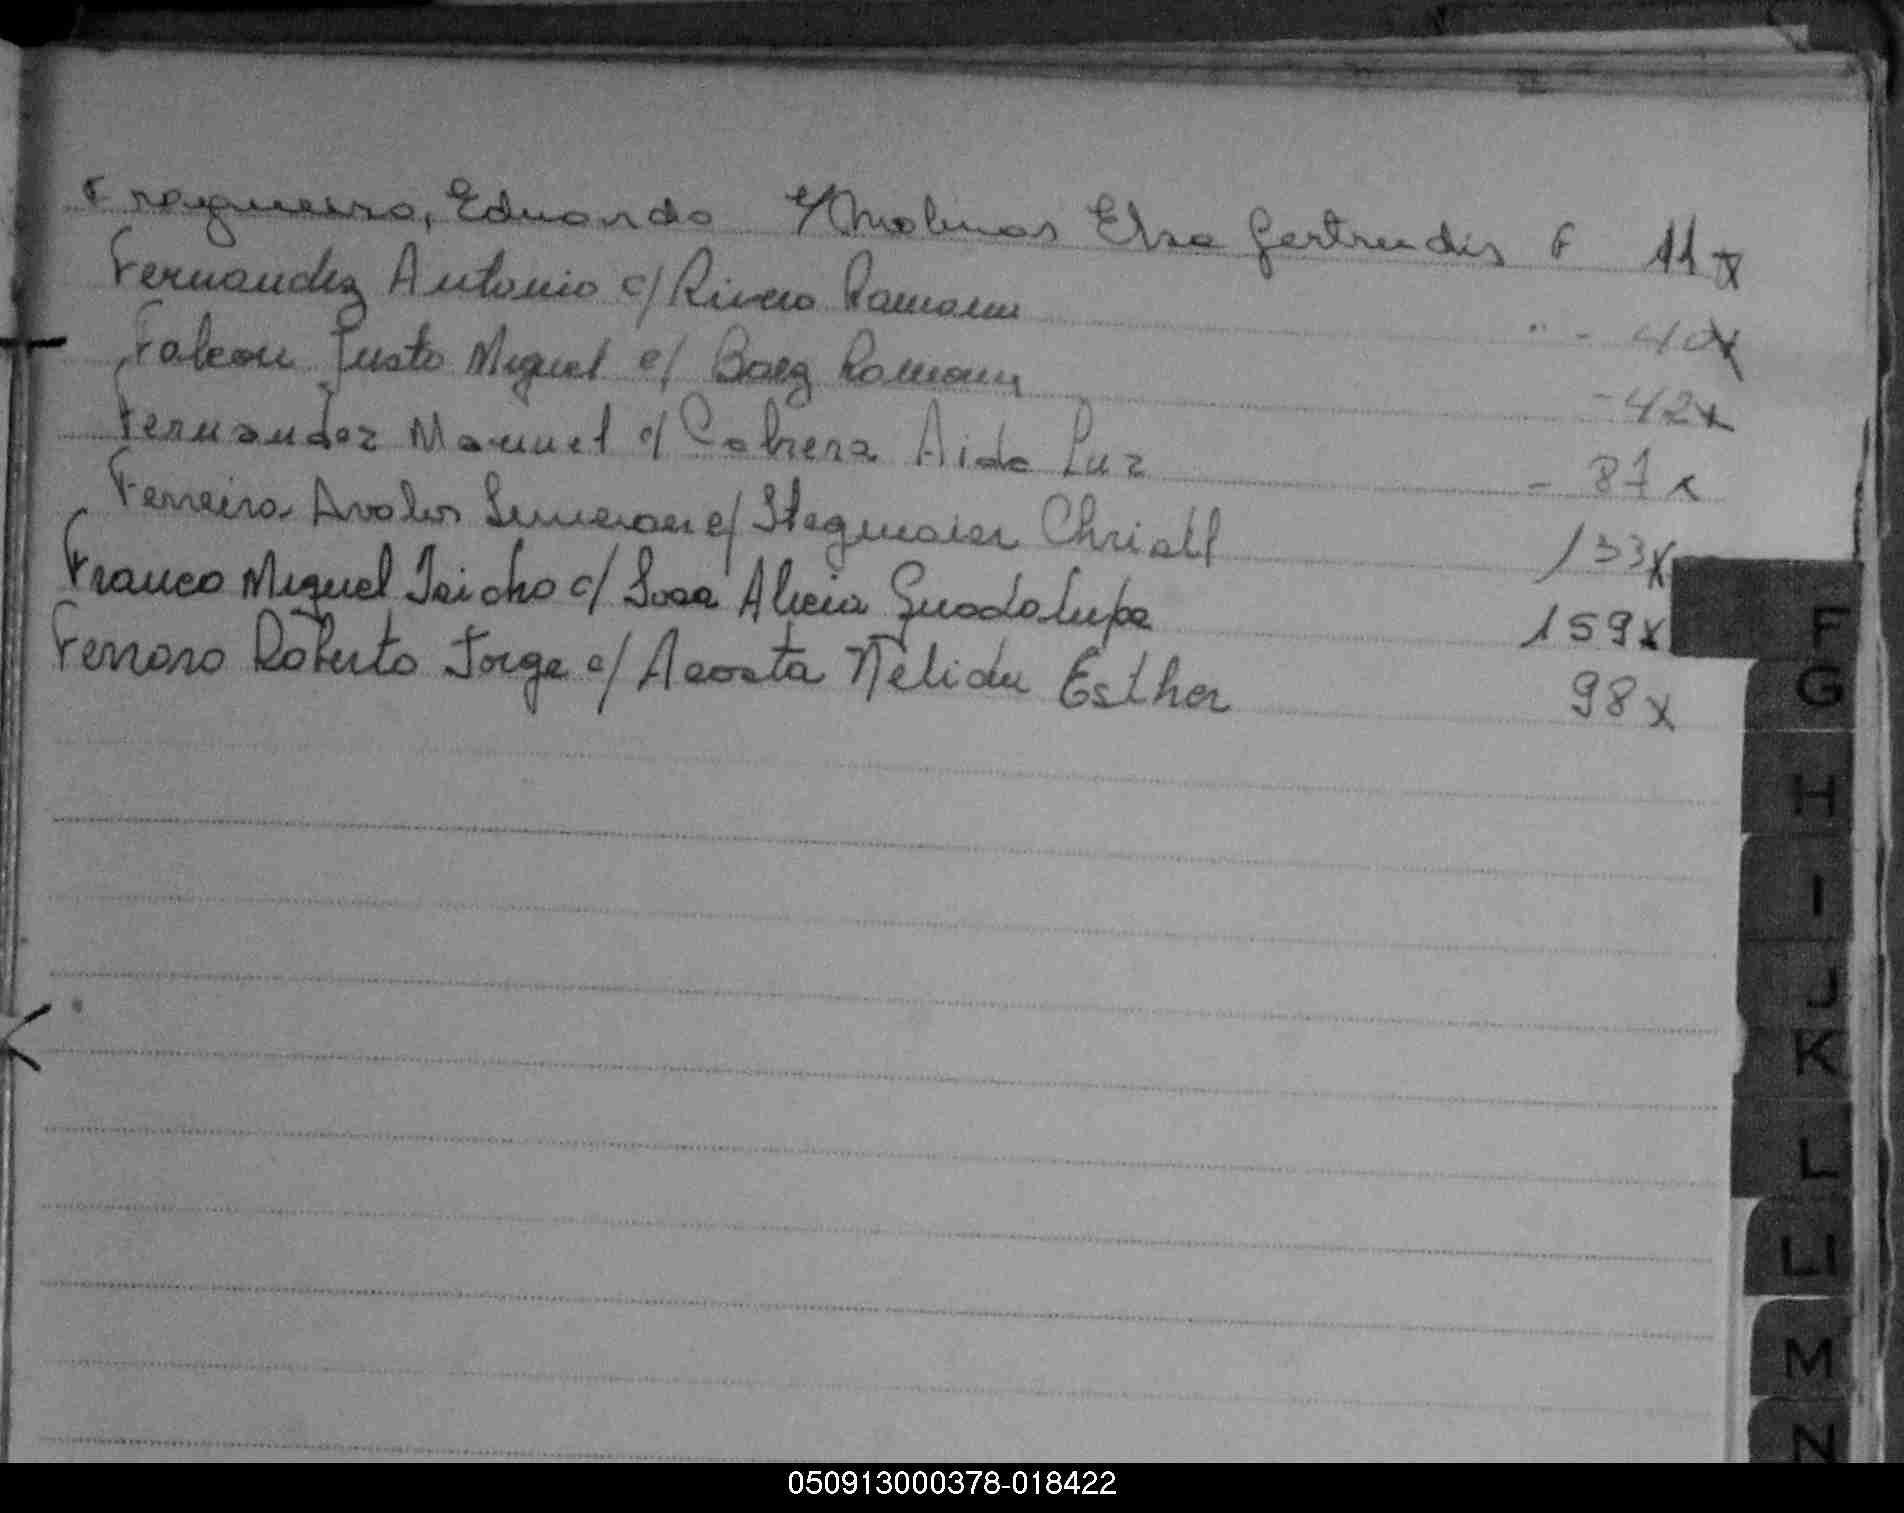 Fragueiro, Eduardo c/ Molinas Elsa Gertrudis F 11 x
Fernandez Antonio c/ Rivero Ramona " - 40 x
Falcon Justo Miguel c/ Baez Romana - 42 x
Fernandez Manuel c/ Cabrera Aida Luz - 87 x
Ferreira Avalos c/ Stegmaier Christl 133 x
Franco Miguel Isidro c/ Sosa Alicia Guadalupe 159 x
Ferraro Roberto Jorge c/ Acosta Nélida Esther 98 x
F
G
H
I
J
K
L
Ll
M
N
050913000378-018422